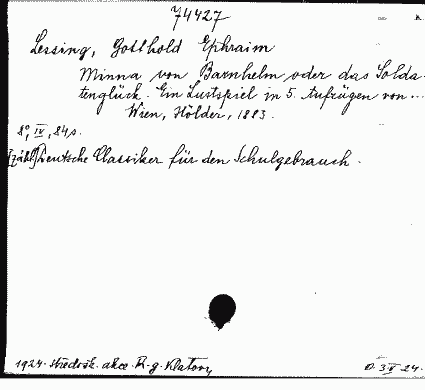 74427
Lessing, Gotthold Ephraim
Minna von Barnhelm oder das Solda-
tenglück. Ein Lustspiel in 5. Aufzügen von...
Wien, Hölder, 1883.
8°, IV, 84 s.
Deutsche Classiker für den Schulgebrauch.
1924. středošk. akce. R. g. Klatovy